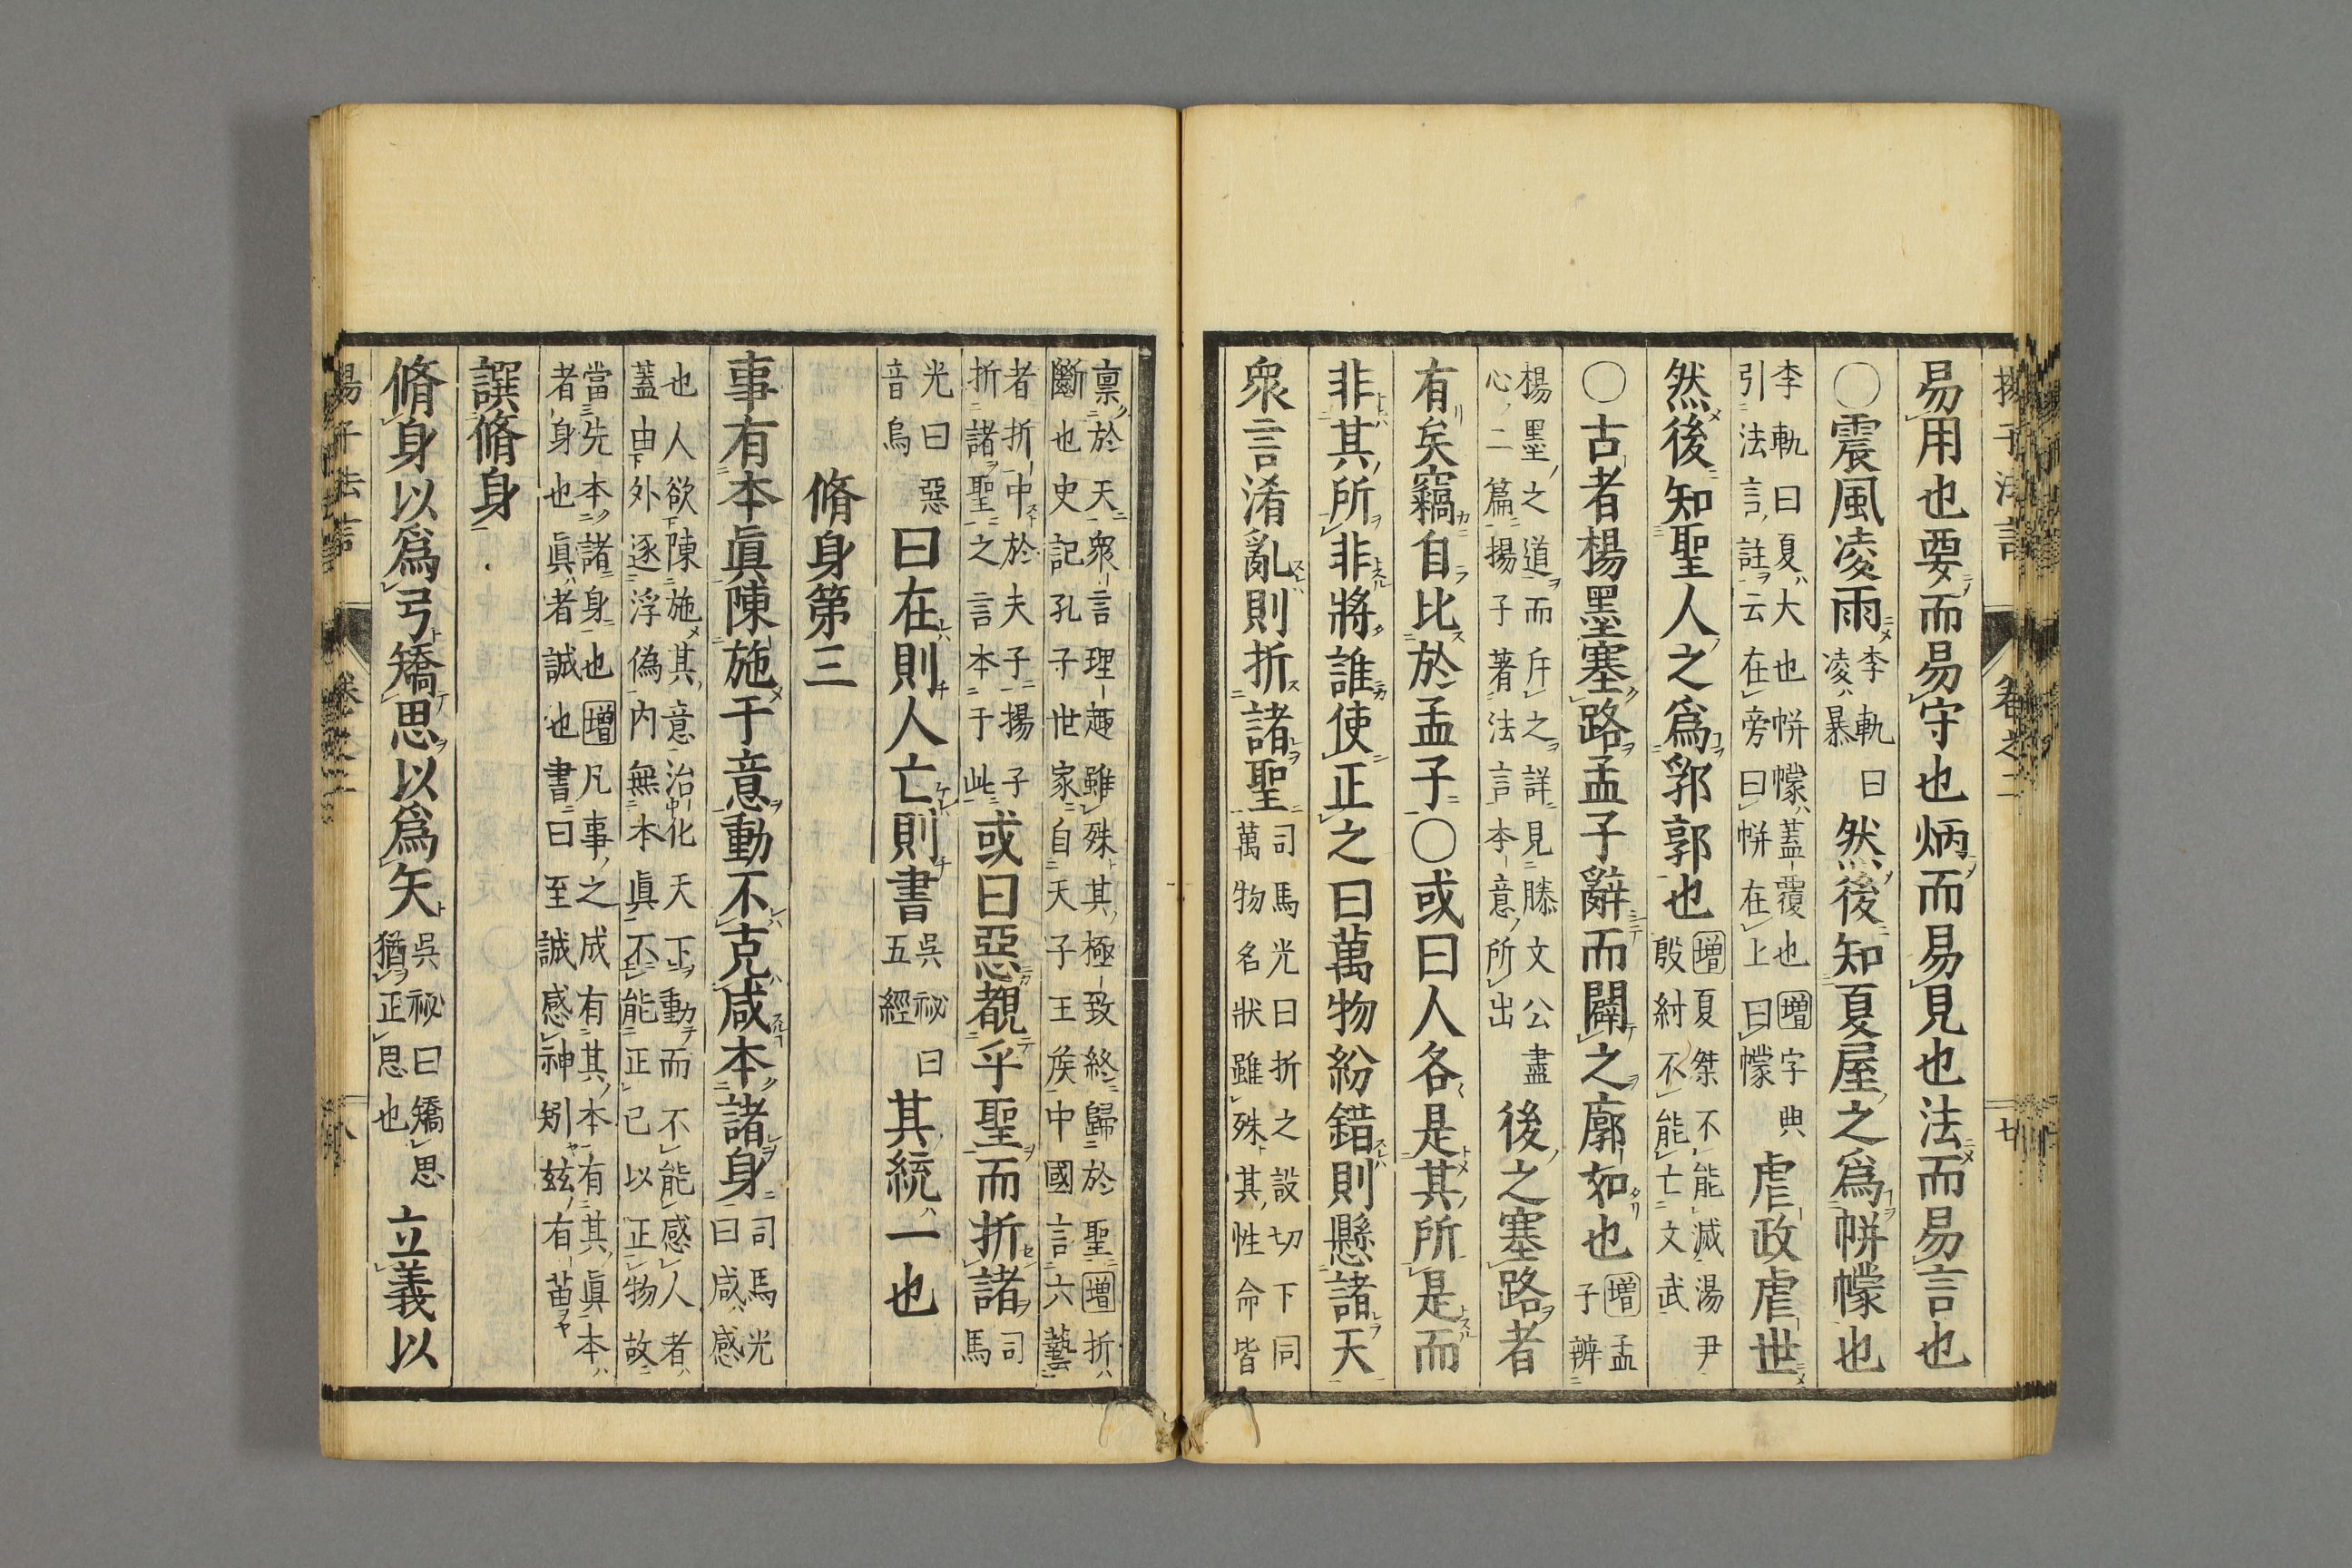 揚子法言 卷之二 七
易用也要而易守也炳而易見也法而易言也
〇震風凌雨李軌曰凌暴然後知夏屋之爲帡幪也
李軌曰夏大也帡幪蓋覆也增字典引法言註云在旁曰帡在上曰幪虐政虐世
然後知聖人之爲郛郭也增夏桀不能滅湯尹殷紂不能亡文武
〇古者楊墨塞路孟子辭而闢之廓如也增孟子辨
楊墨之道而斥之詳見滕文公盡心二篇揚子著法言本意所出後之塞路者
有矣竊自比於孟子〇或曰人各是其所是而
非其所非將誰使正之曰萬物紛錯則懸諸天
衆言淆亂則折諸聖司馬光曰折之設切下同萬物名狀雖殊其性命皆
稟於天衆言理趣雖殊其極致終歸於聖增折斷也史記孔子世家自天子王矦中國言六藝
者折中於夫子揚子折諸聖之言本于此或曰惡覩乎聖而折諸司馬
光曰惡音烏曰在則人亡則書吳祕曰五經其統一也
脩身第三
事有本眞陳施于意動不克咸本諸身司馬光曰咸感
也人欲陳施其意治化天下動而不能感人者蓋由外逐浮偽內無本眞不能正已以正物故
當先本諸身也增凡事之成有其本有其眞本者身也眞者誠也書曰至誠感神矧玆有苗
譔脩身
脩身以爲弓矯思以爲矢吳祕曰矯思猶正思也立義以
揚子法言 卷之二 八